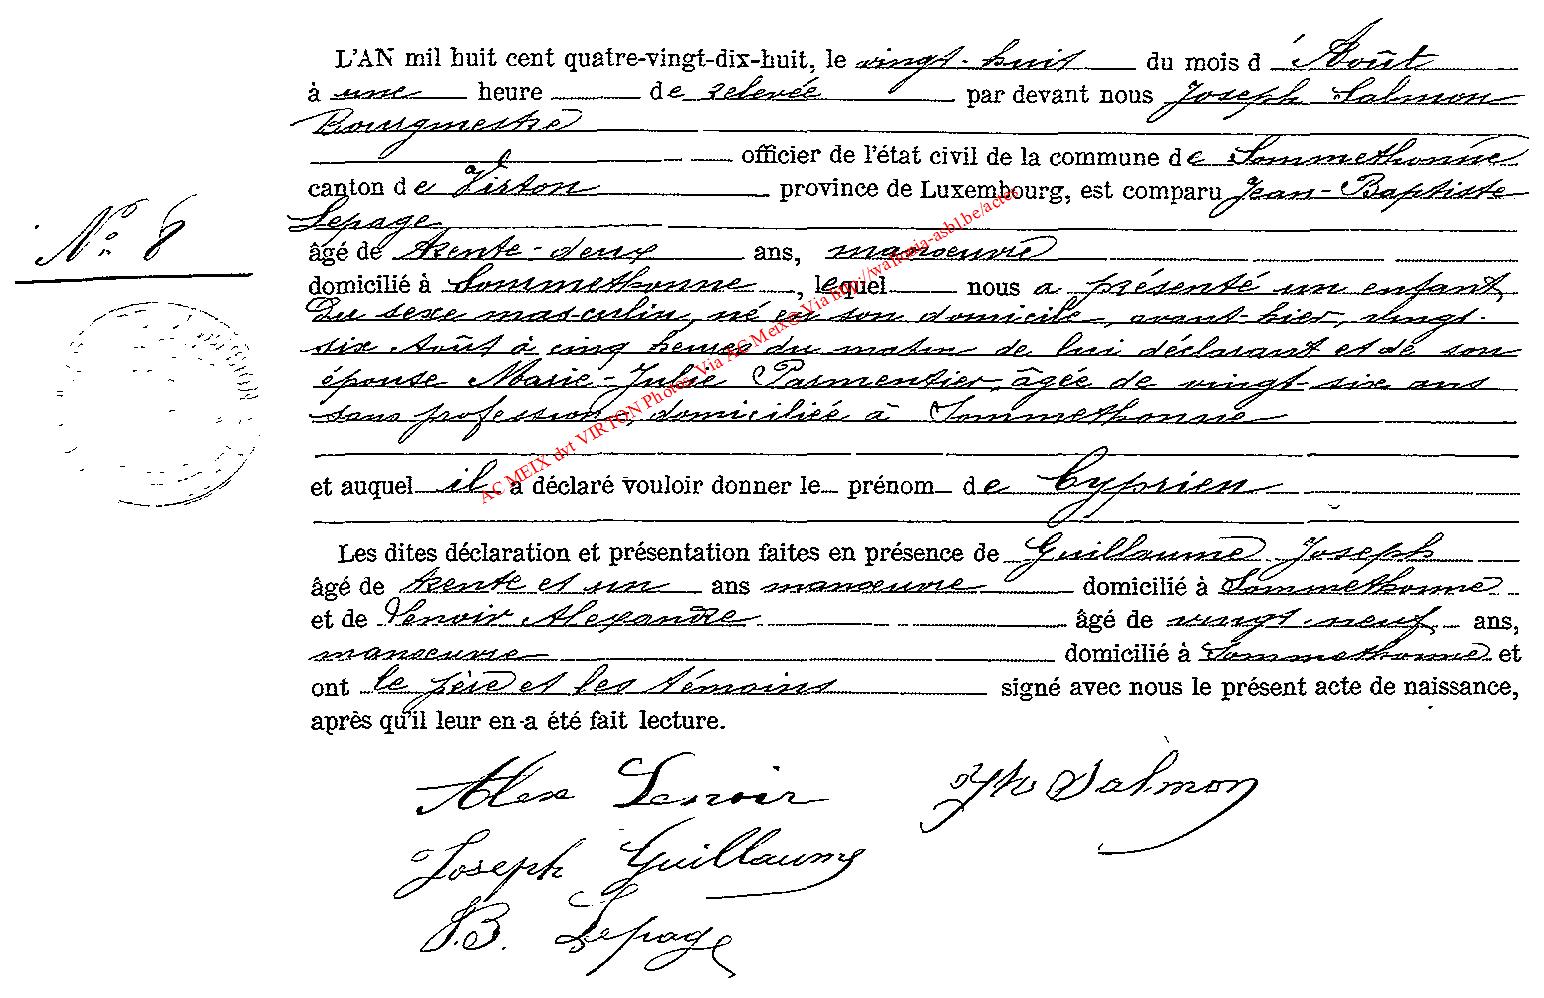 L'AN mil huit cent quatre-vingt-dix-huit, le vingt-huit du mois d'Août
à une heure de relevée par devant nous Joseph Salmon
Bourgmestre
officier de l'état civil de la commune de Sommethonne
canton de Virton province de Luxembourg, est comparu Jean-Baptiste
Lepage
N° 8
âgé de trente-deux ans, manœuvre
domicilié à Sommethonne, lequel nous a présenté un enfant
Du sexe masculin, né en son domicile, avant-hier, vingt-
six Août à cinq heures du matin de lui déclarant et de son
épouse Marie-Julie Parmentier, âgée de vingt-six ans
sans profession, domiciliée à Sommethonne
et auquel il a déclaré vouloir donner le prénom de Cyprien
Les dites déclaration et présentation faites en présence de Guillaume Joseph
âgé de trente et un ans manœuvre domicilié à Sommethonne
et de Lenoir Alexandre âgé de vingt-neuf ans,
manœuvre domicilié à Sommethonne et
ont le père et les témoins signé avec nous le présent acte de naissance,
après qu'il leur en a été fait lecture.
Alex Lenoir Jph Salmon
Joseph Guillaume
J.B. Lepage
AC MEIX dvt VIRTON Photos Via AC Meix© Via http://wallonia-asbl.be/actes